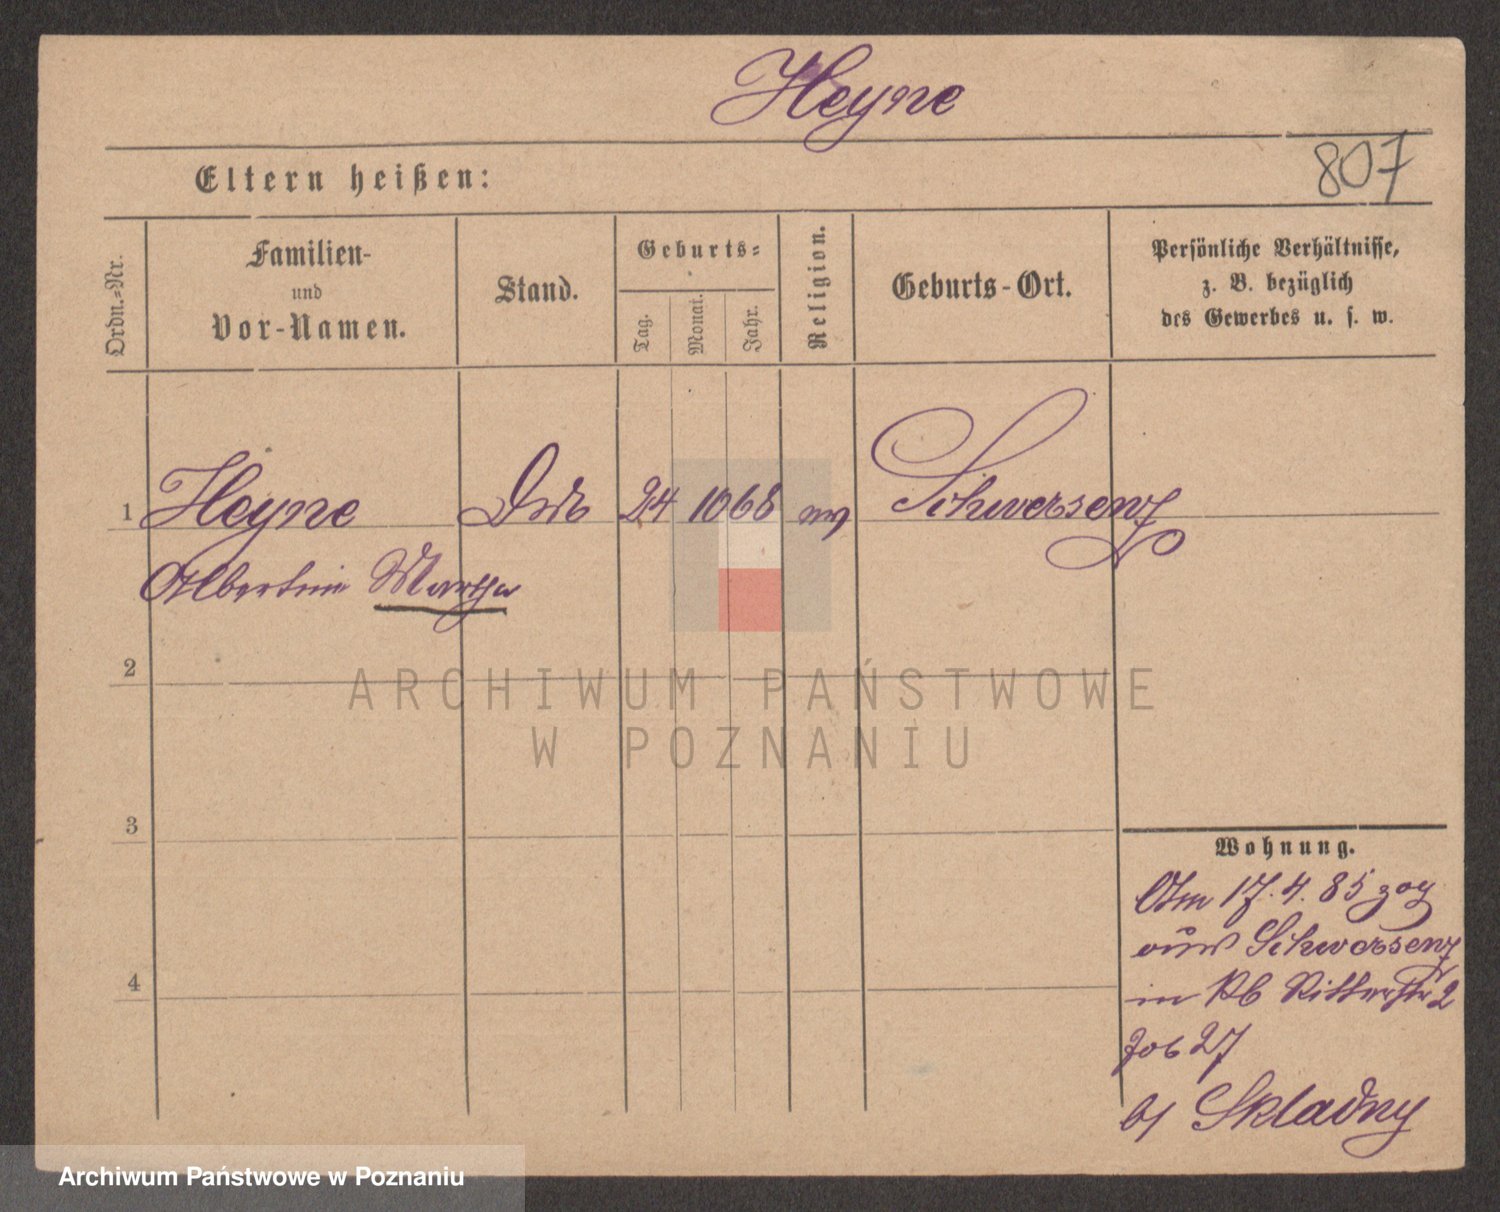 Heyne
807
Eltern heißen:
Ordn.-Nr.
Familien-
und
Vor-Namen.
Stand.
Geburts-
Tag.
Monat.
Jahr.
Religion.
Geburts-Ort.
Persönliche Verhältnisse,
z. B. bezüglich
des Gewerbes u. s. w.
1 Heyne 24 10 68 Schwersenz
Albertine Martha
2
3
4
Wohnung.
Am 17.4.85 zog
aus Schwersenz
in Ritterstr 2
27
Skladny
ARCHIWUM PAŃSTWOWE
W POZNANIU
Archiwum Państwowe w Poznaniu